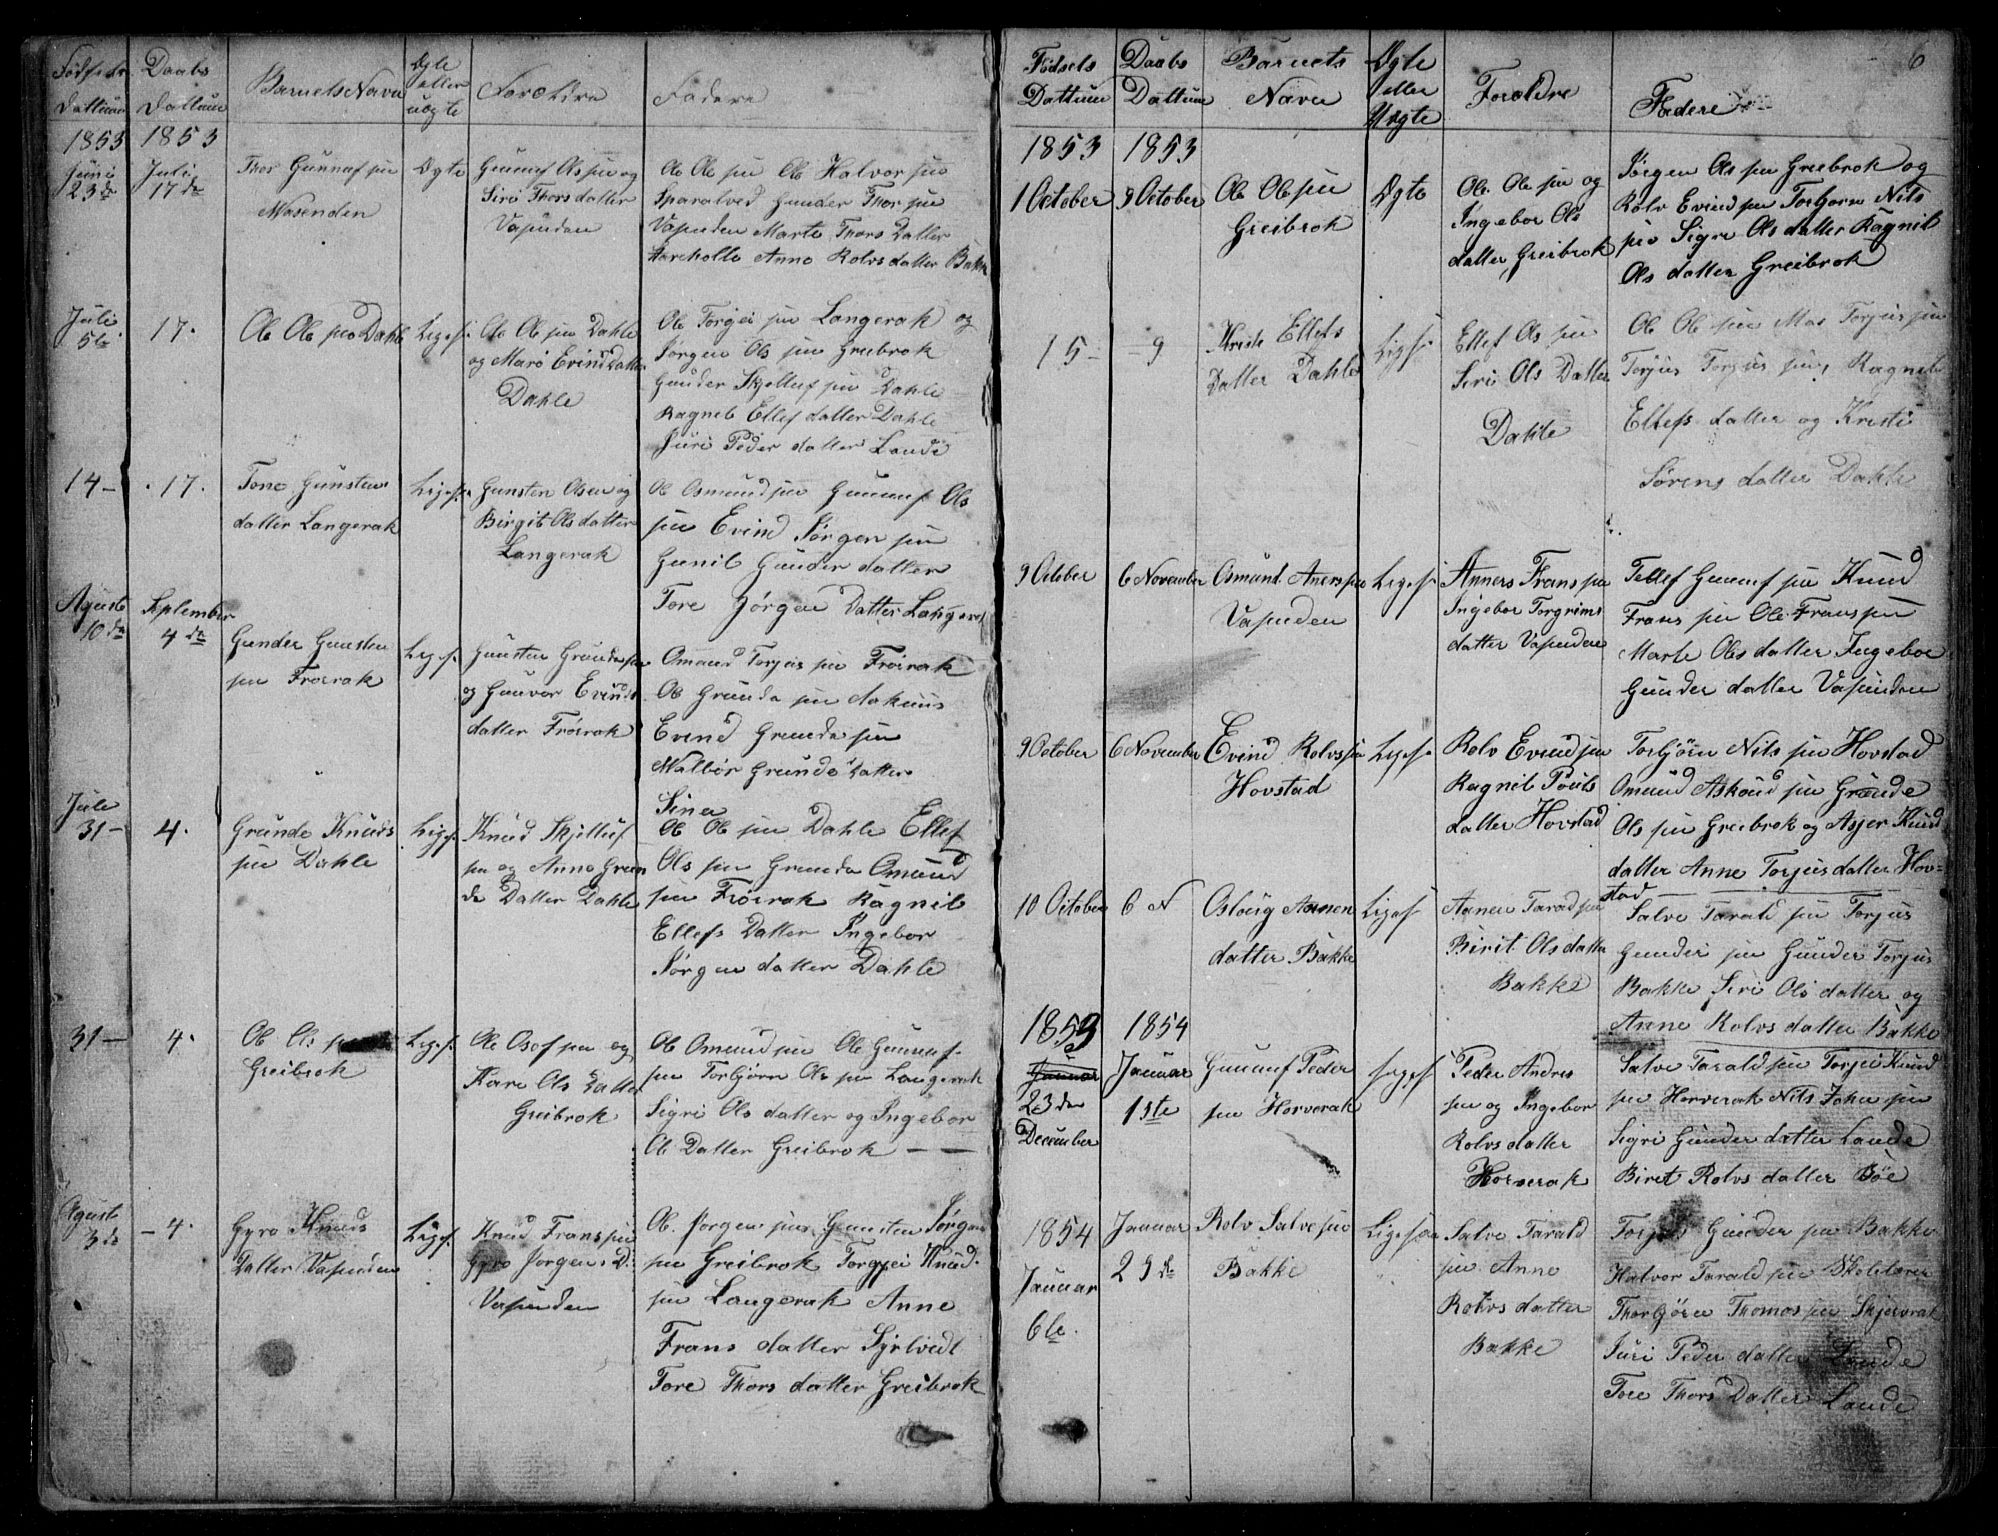 Fødsels
Dattum
Daabs
Dattum
Barnets Navn
Ægte
eller
uægte
Forældre
Fadere
1853
1853
Juni
23de
Juli
17de
Thor Gunnuf sen
Mosenden
Ægte
Gunnuf Ols sen og
Siri Thors datter
Vasenden
Ole Ole sen Ole Halvor sen
Sparatved Gunder Thor sen
Vasenden Marte Thors Datter
Anne Rolvs datter Bakke
Juli
5te
17.
Ole Ole sen Dahle
Liges.
Ole Ole sen Dahle
og Mari Evind Datter
Dahle
Ole Torgei sen Langerak og
Jørgen Ols sen Greibrok
Gunder Skjelluf sen Dahle
Ragnil Ellef datter Dahle
Juri Peder datter Lande
14 -
17.
Tone Gunsten
datter Langerak
Ligesaa
Gunsten Olsen og
Birgit Ols datter
Langerak
Ole Osmund sen Gunnuf Ols
sen Evind Jørgen sen
Gunil Gunder datter
Tore Jørgen Datter Langerak
Agust
10de
September
4de
Gunder Gunsten
sen Frøirak
Liges.
Gunsten Grunde sen
og Gunvor Evinds
datter Frøirak
Omund Torjus sen Frøirak
Ole Grunde sen
Evend Grunde sen
Valbør Grunde Datter
Juli
31 -
4.
Grunde Knuds
sen Dahle
Liges.
Knud Skjelluf
sen og Anne Grun
de Datter Dahle
Ole Ole sen Dahle Ellef
Ols sen Grunde Omund
sen Frøirak Ragnil
Ellefs Datter Ingebor
Jørgen datter Dahle
31 -
4.
Ole Ols sen
Greibrok
Liges.
Ole Osof sen og
Kari Ols Datter
Greibrok
Ole Omund sen Ole Gunnuf
sen Torbjørn Ole sen Langerak
Sigri Ols datter og Ingebor
Ole Datter Greibrok
Agust
3de
- 4.
Gyro Knuds
Datter Vasenden
Liges.
Knud Frans sen
Gyro Jørgens D:
Vasenden
Ole Jørgen sen Gunsten Jørgen
sen Greibrok Torgjei Knud
sen Langerak Anne
Frans datter
Tore Thors datter Greibrok
6
Fødsels
Dattum
Daabs
Dattum
Barnets
Navn
Ægte
eller
Uægte
Forældre
Fadere
1853
1853
1 October
9 October
Ole Ole sen
Greibrok
Ægte
Ole Ole sen og
Ingebor Ols
datter Greibrok
Jørgen Ols sen Greibrok og
Rolv Evind sen Torbjorn Nils
sen Sigri Ols datter Ragnil
Ols datter Greibrok
15 -
- 9
Ellefs
Datter Dahle
Liges
Ellef Ols sen
Siri Ols Datter
Dahle
Ole Ole sen Torjus sen
Torjus Torjus sen, Ragnil
Ellefs datter og Kristi
Sørens datter Dahle
9 October
6 November
Osmund Aners sen
Vasenden
Liges
Anners Frans sen
Ingebor Torgrims
datter Vasenden
Tellef Gunnuf sen Knud
Frans sen Ole Frans sen
Marte Ols datter Ingebor
Gunder datter Vasenden
9 October
6 November
Evind Rolvs sen
Hovstad
Liges.
Rolv Evend sen
Ragnil Pouls
datter Hovstad
Torbjørn Nils sen Hovstad
Omund Askoud sen Grunde
Ols sen Greibrok og Asjer Knud
datter Anne Torjus datter Hov=
stad
10 October
6 N
Oslaug Aanen
datter Bakke
Liges
Aanen Tarald sen
Birit Ols datter
Bakke
Salve Tarald sen Torjus
Gunder sen Gunder Torjus
Bakke Siri Ols datter og
Anne Rolvs datter Bakke
1853
1854
Januar
23de
December
Januar
1ste
Gunnuf Peder
sen Horverak
Liges
Peder Andres
sen og Ingebor
Rolvs datter
Horverak
Salve Tarald sen Torjei Knud
sen Horverak Nils John sen
Sigri Gunder datter Lande
Biret Rolvs datter Bøe
1854
Januar
6te.
Januar
29de
Rolv Salve sen
Bakke
Ligesaa
Salve Tarald
sen Anne
Rolvs datter
Bakke
Torjus Gunder sen Bakke
Halvor Tarald sen Skolelærer
Thorbjørn Thomas sen Skjervrak
Juri Peder datter Lande
Tore Thors Datter Lande